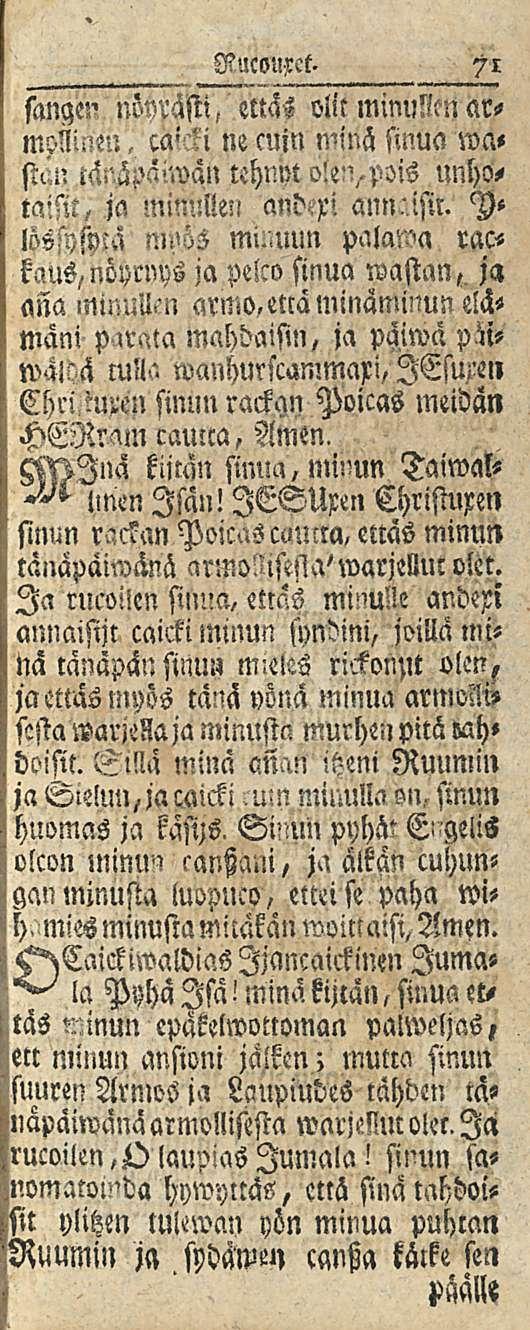 Rucouxet. 71
sangen nöyrästi, ettäs olit minullen ar⸗
mollinen, caicki ne cuin minä sinua wa⸗
stan tänäpäiwän tehnyt olen, pois unho⸗
taisit, ja minullen andexi annaisit. Y⸗
lössytytä myös minuun palawa rac⸗
kaus, nöyryys ja pelco sinua wastan, ja
aña minullen armo, että minä minun elä⸗
mäni parata mahdaisin, ja päiwä päi⸗
wäldä tulla wanhurscammaxi, JEsuxen
Christuxen sinun rackan Poicas meidän
HERram cautta, Amen.
MJnä kijtän sinua, minun Taiwal⸗
linen Isän! JESUxen Christuxen
sinun rackan Poicas cautta, ettäs minun
tänäpäiwänä armollisesta warjellut olet.
Ja rucoilen sinua, ettäs minulle andexi
annaisijt caicki minun syndini, joillä mi⸗
nä tänäpän sinun mieles rickonut olen,
ja ettäs myös tänä yönä minua armolli⸗
sesta warjella ja minusta murhen pitä tah⸗
doisit. Sillä minä añan itzeni Ruumin
ja Sielun, ja caicki cuin minulla on, sinun
huomas ja käsijs. Sinun pyhät Engelis
olcon minun canßani, ja älkän cuhun⸗
gan minusta luopuco, ettei se paha wi⸗
hamies minusta mitäkän woittaisi, Amen.
OCaickiwaldias Ijancaickinen Juma⸗
la Pyhä Isä! minä kijtän, sinua et⸗
täs minun epäkelwottoman palweljas,
ett minun ansioni jälken; mutta sinun
suuren Armos ja Laupiudes tähden tä⸗
näpäiwänä armollisesta warjellut olet. Ja
rucoilen, O laupias Jumala! sinun sa⸗
nomatoinda hywyttäs, että sinä tahdoi⸗
sit ylitzen tulewan yön minua puhtan
Ruumin ja sydämen canßa kätke sen
päälle